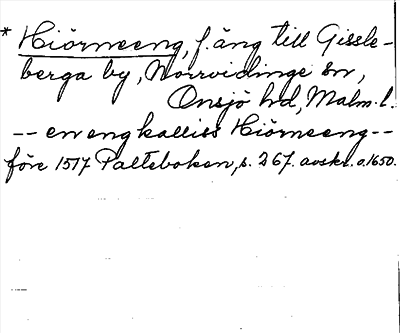 * Hiörneeng, f. äng till Gissle-
berga by, Norrvidinge sn,
Onsjö hd, Malm. l.
-- en eng kalliss Hiörneeng --
före 1517 Palteboken, s. 267. avskr. o. 1650.